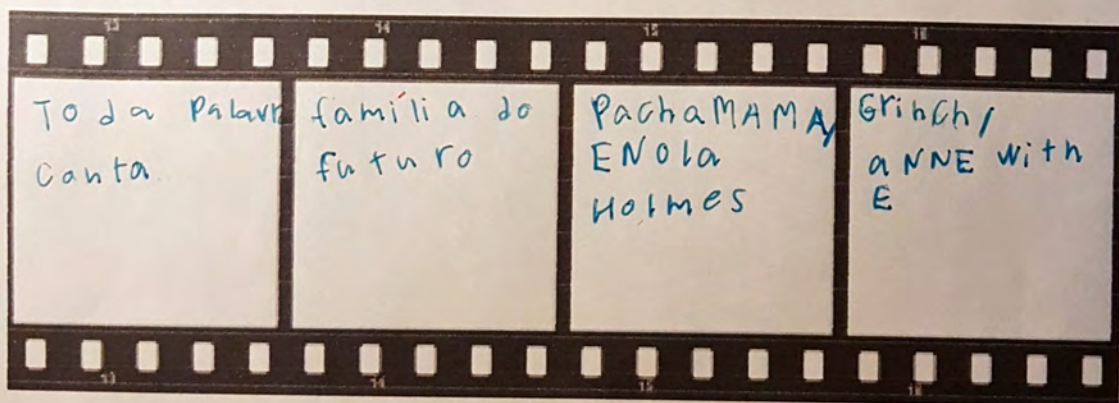 13 14 15 16
Toda Palavr
Canta
família do
futuro
PachaMAMA/
ENola
Holmes
Grinch/
aNNE with
E
13 14 15 16